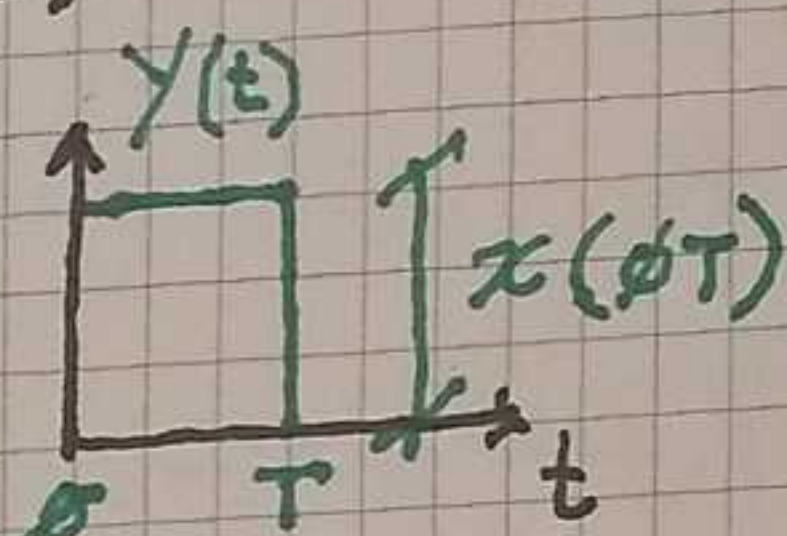 y(t)
x(øT)
ø T t